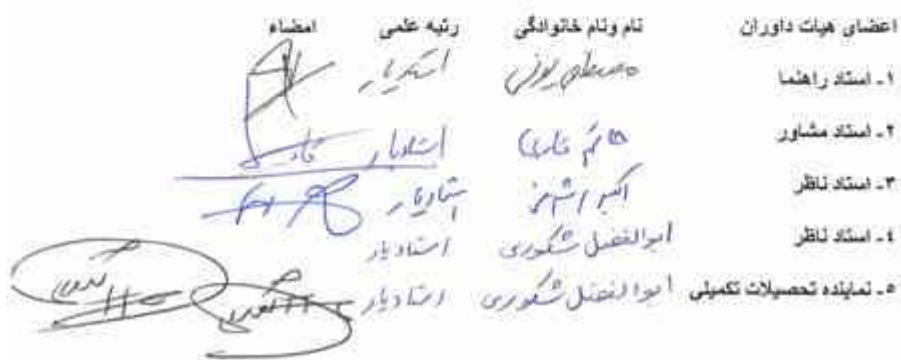 اعضای هیات داوران نام ونام خانوادگی رتبه علمی امضاء
۱- استاد راهنما مصطفی یونسی استادیار
۲- استاد مشاور حاتم قادری استادیار
۳- استاد ناظر اکبر استادیار
٤- استاد ناظر ابوالفضل شکوری استادیار
٥- نماینده تحصیلات تکمیلی ابوالفضل شکوری استادیار